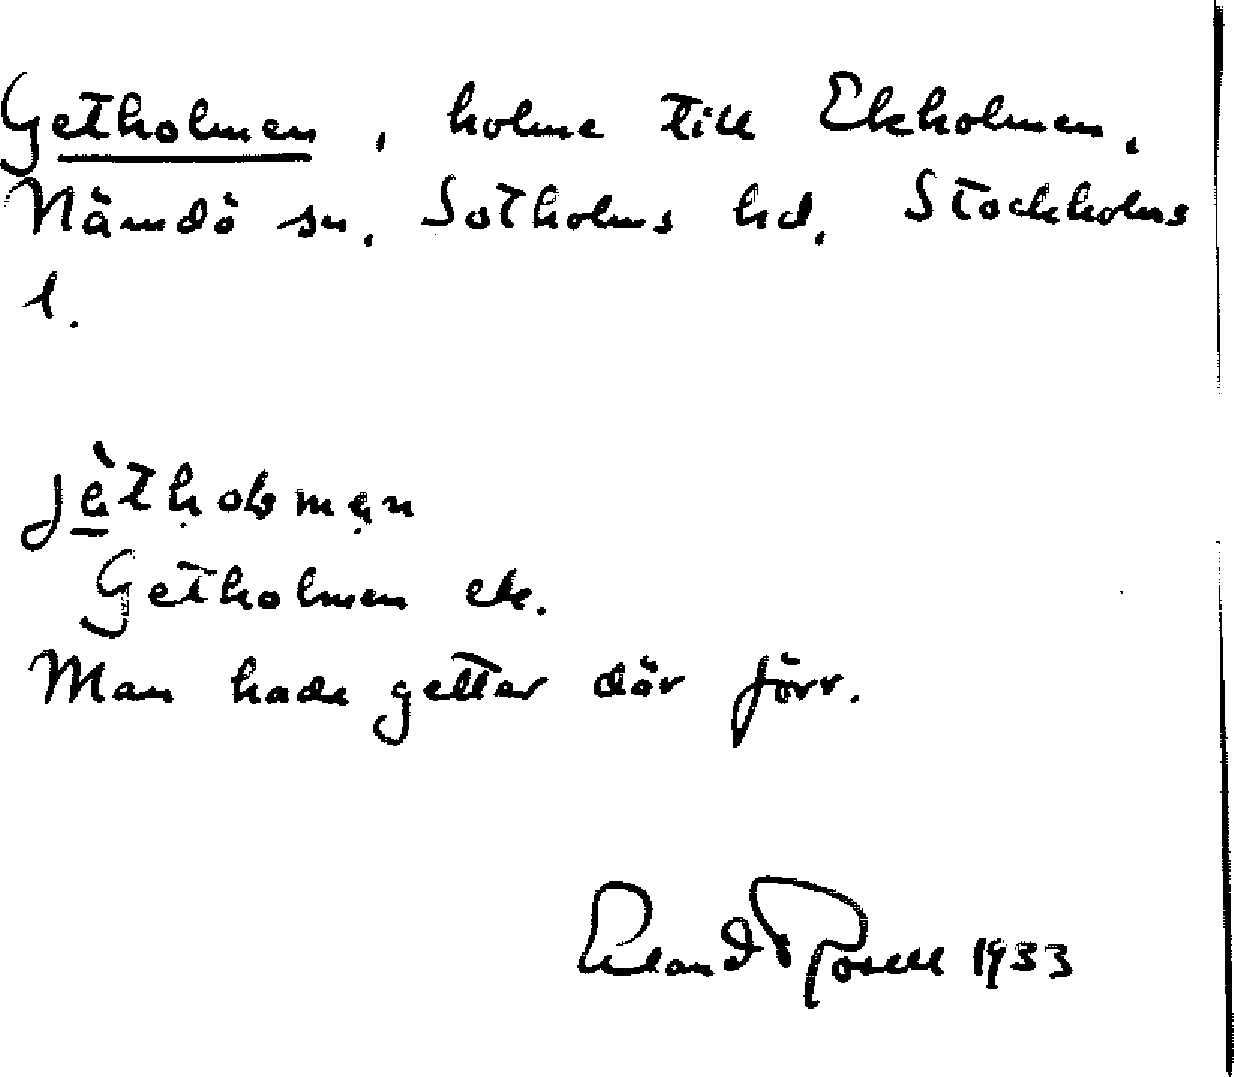 Getholmen, holme till Ekholmen,
Nämdö sn, Sotholms hd, Stockholms
l.
jèthọlmẹn
Getholmen ek.
Man hade gettar där förr.
Erland Rosell 1933